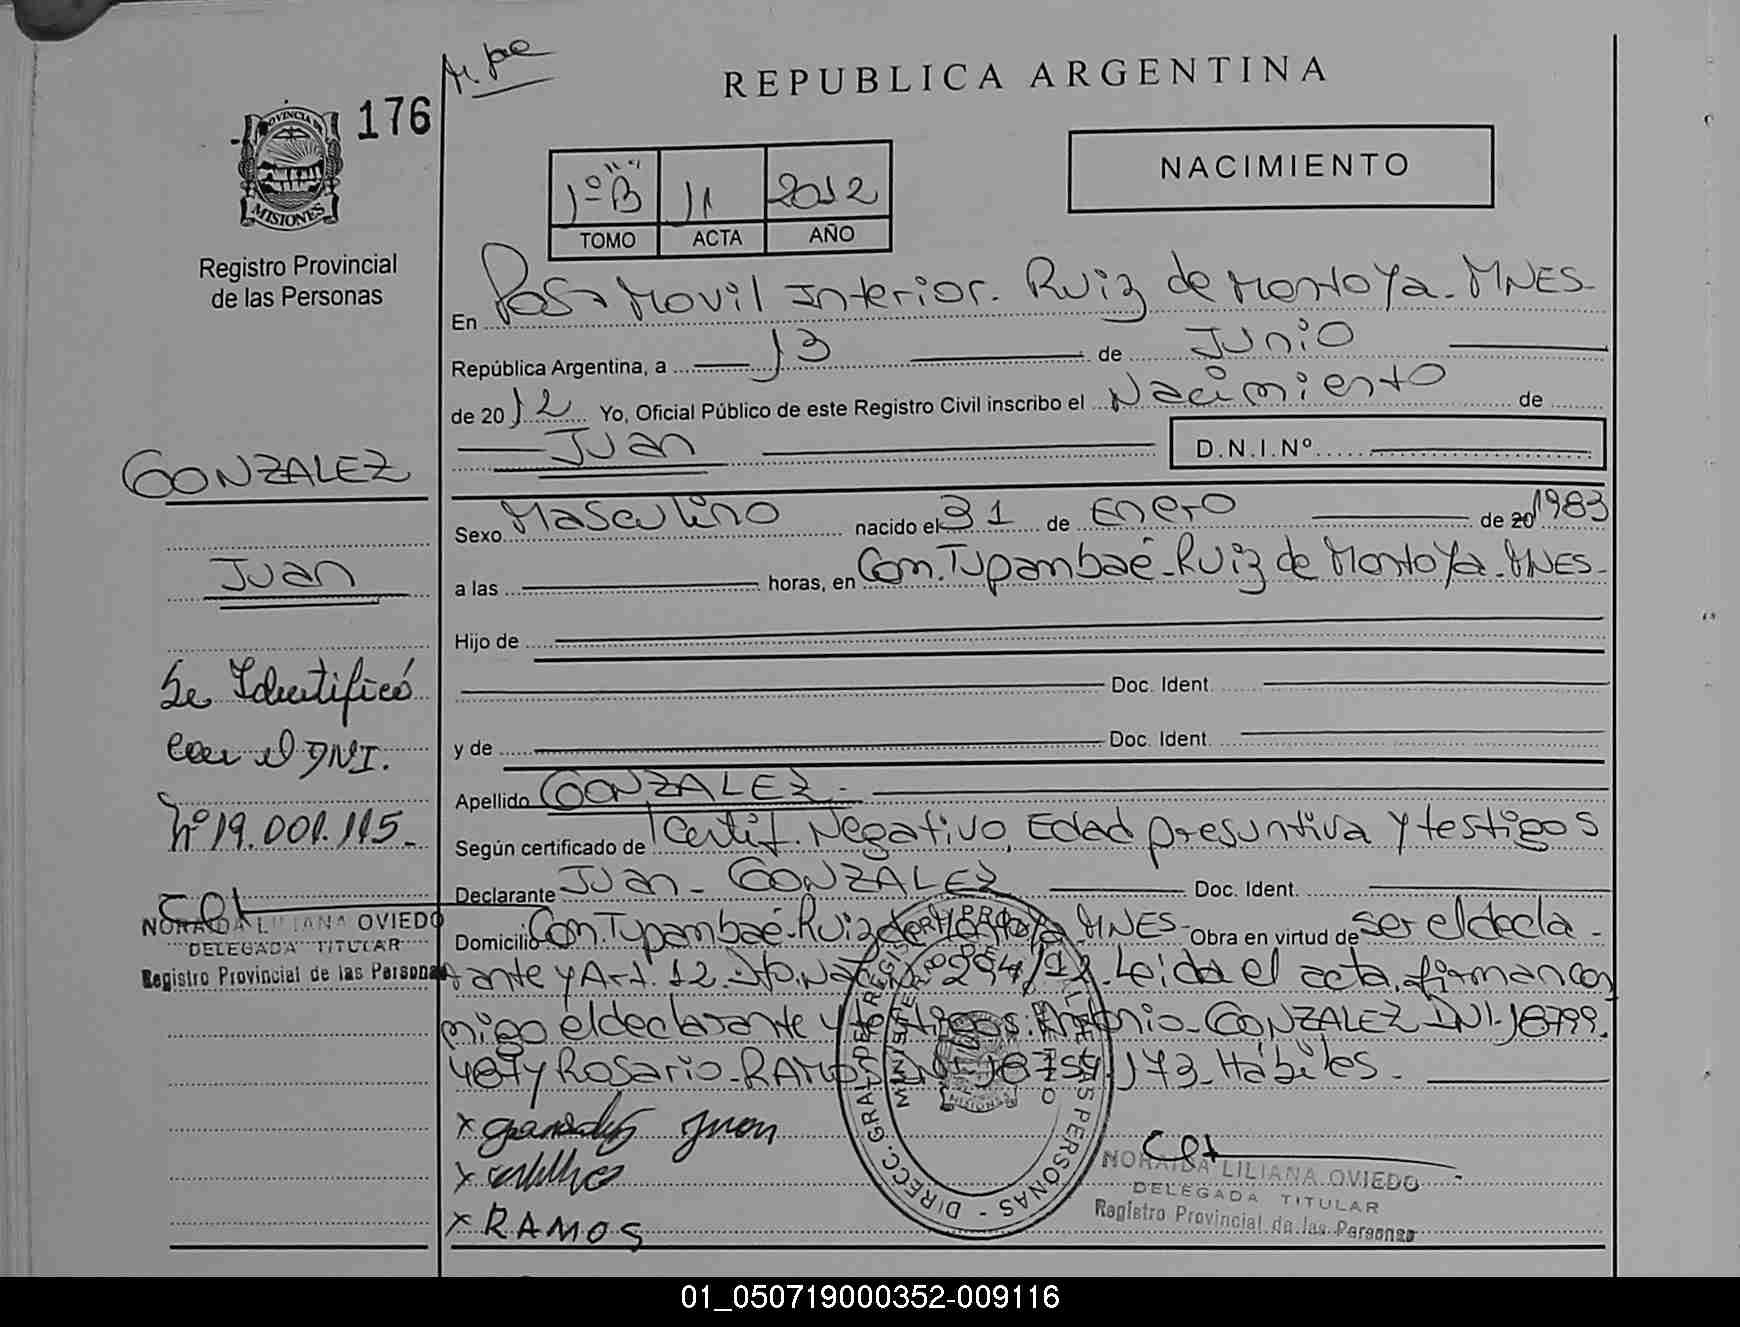 M. pe
REPUBLICA ARGENTINA
176
PROVINCIA DE
MISIONES
Registro Provincial
de las Personas
NACIMIENTO
1º "B" 11 2012
TOMO ACTA AÑO
En Posta Movil Interior. Ruiz de Montoya. MNES.
República Argentina, a 13 de Junio
de 2012 Yo, Oficial Público de este Registro Civil inscribo el Nacimiento de
Juan D.N.I.Nº
GONZALEZ
Juan
Sexo Masculino nacido el 31 de Enero de 20 1983
a las horas, en Com. Tupambaé-Ruiz de Montoya-MNES-
Hijo de
Doc. Ident.
y de Doc. Ident.
Se Identificó
con el DNI.
Nº 19.001.115.
Apellido GONZALEZ.-
Según certificado de Certif. Negativo, Edad presuntiva y testigos
Declarante Juan- GONZALEZ Doc. Ident.
Domicilio Com. Tupambaé-Ruiz de Montoya MNES- Obra en virtud de ser el decla-
rante y Art. 12. Dto. 294/12. Leida el acta, firman con
migo el declarante y testigos: Antonio- GONZALEZ DNI-18799.
487 y Rosario-RAMOS DNI 18759.173-Hábiles.
NORAIDA LILIANA OVIEDO
DELEGADA TITULAR
Registro Provincial de las Personas
x Juan
x
x RAMOS
DIRECC. GRAL. DEL REGISTRO PROV. DE LAS PERSONAS -
MISIONES
NORAIDA LILIANA OVIEDO
DELEGADA TITULAR
Registro Provincial de las Personas
01_050719000352-009116